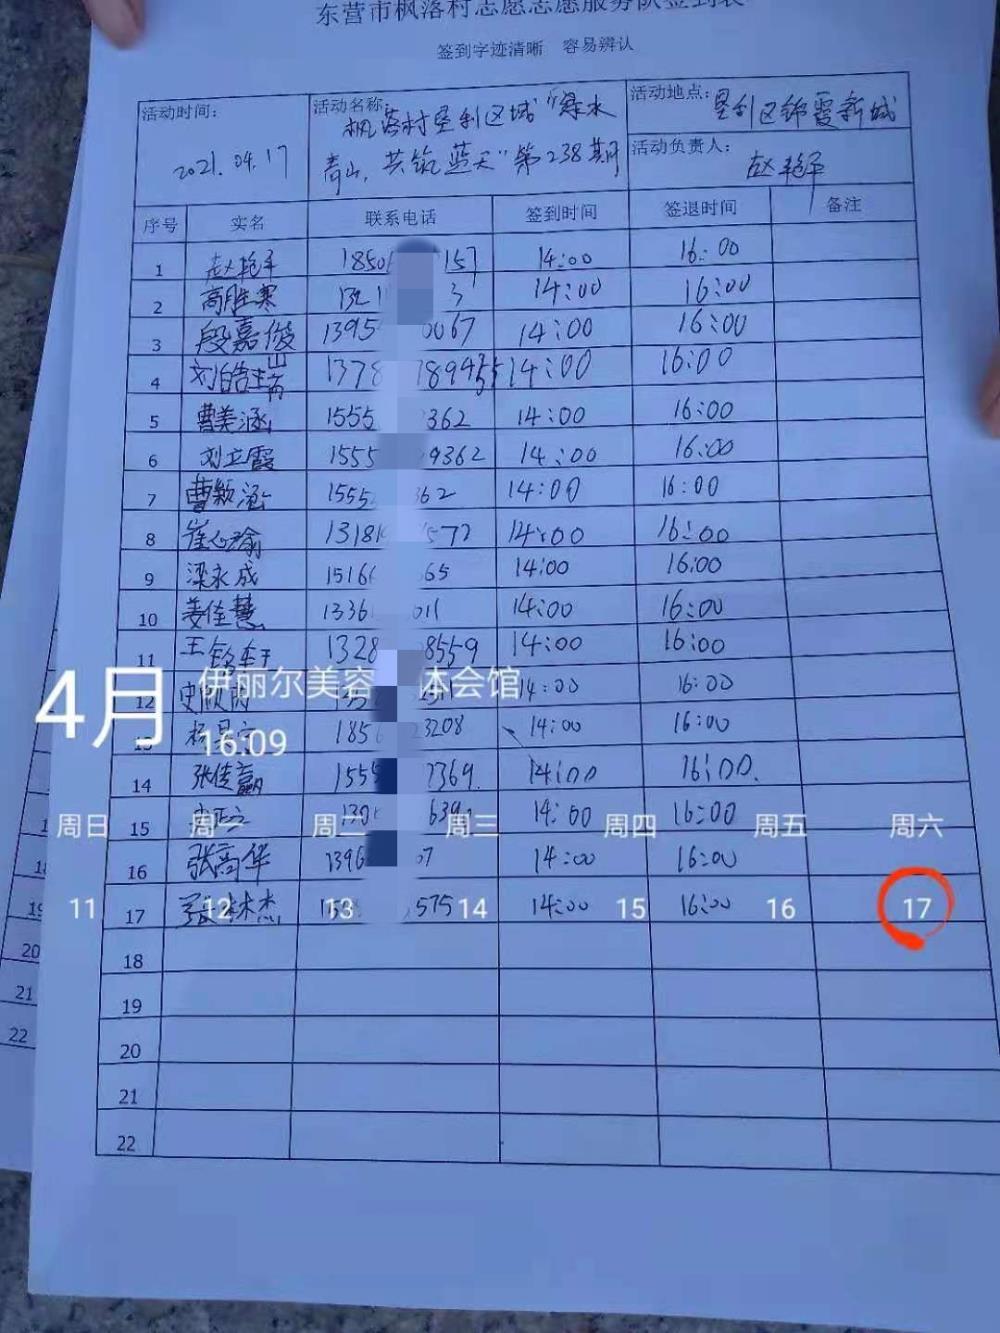 东营市枫落村志愿志愿服务队签到表
签到字迹清晰 容易辨认
活动时间: 2021.04.17
活动名称: 枫落村垦利区域“绿水
青山,共筑蓝天”第238期
活动地点: 垦利区锦霞新城
活动负责人: 赵艳平
序号 实名 联系电话 签到时间 签退时间 备注
1 赵艳平 1850 157 14:00 16:00
2 高胜寒 132 3 14:00 16:00
3 殷嘉俊 1395 0067 14:00 16:00
4 刘皓 1378 14:00 16:00
5 曹美涵 1555 362 14:00 16:00
6 刘立霞 1555 9362 14:00 16:00
7 曹颖涵 1555 362 14:00 16:00
8 崔心瑜 1318 572 14:00 16:00
9 梁永成 1516 65 14:00 16:00
10 姜佳慧 1336 011 14:00 16:00
11 王铭轩 1328 8559 14:00 16:00
12 史欣 14:00 16:00
13 杨 185 3208 14:00 16:00
14 张佳赢 155 7369 14:00 16:00
15 130 639 14:00 16:00
16 张高华 1396 07 14:00 16:00
17 张林杰 575 14:00 16:00
18
19
20
21
22
4月
伊丽尔美容 体会馆
16:09
周日 周一 周二 周三 周四 周五 周六
11 12 13 14 15 16 17
20
21
22